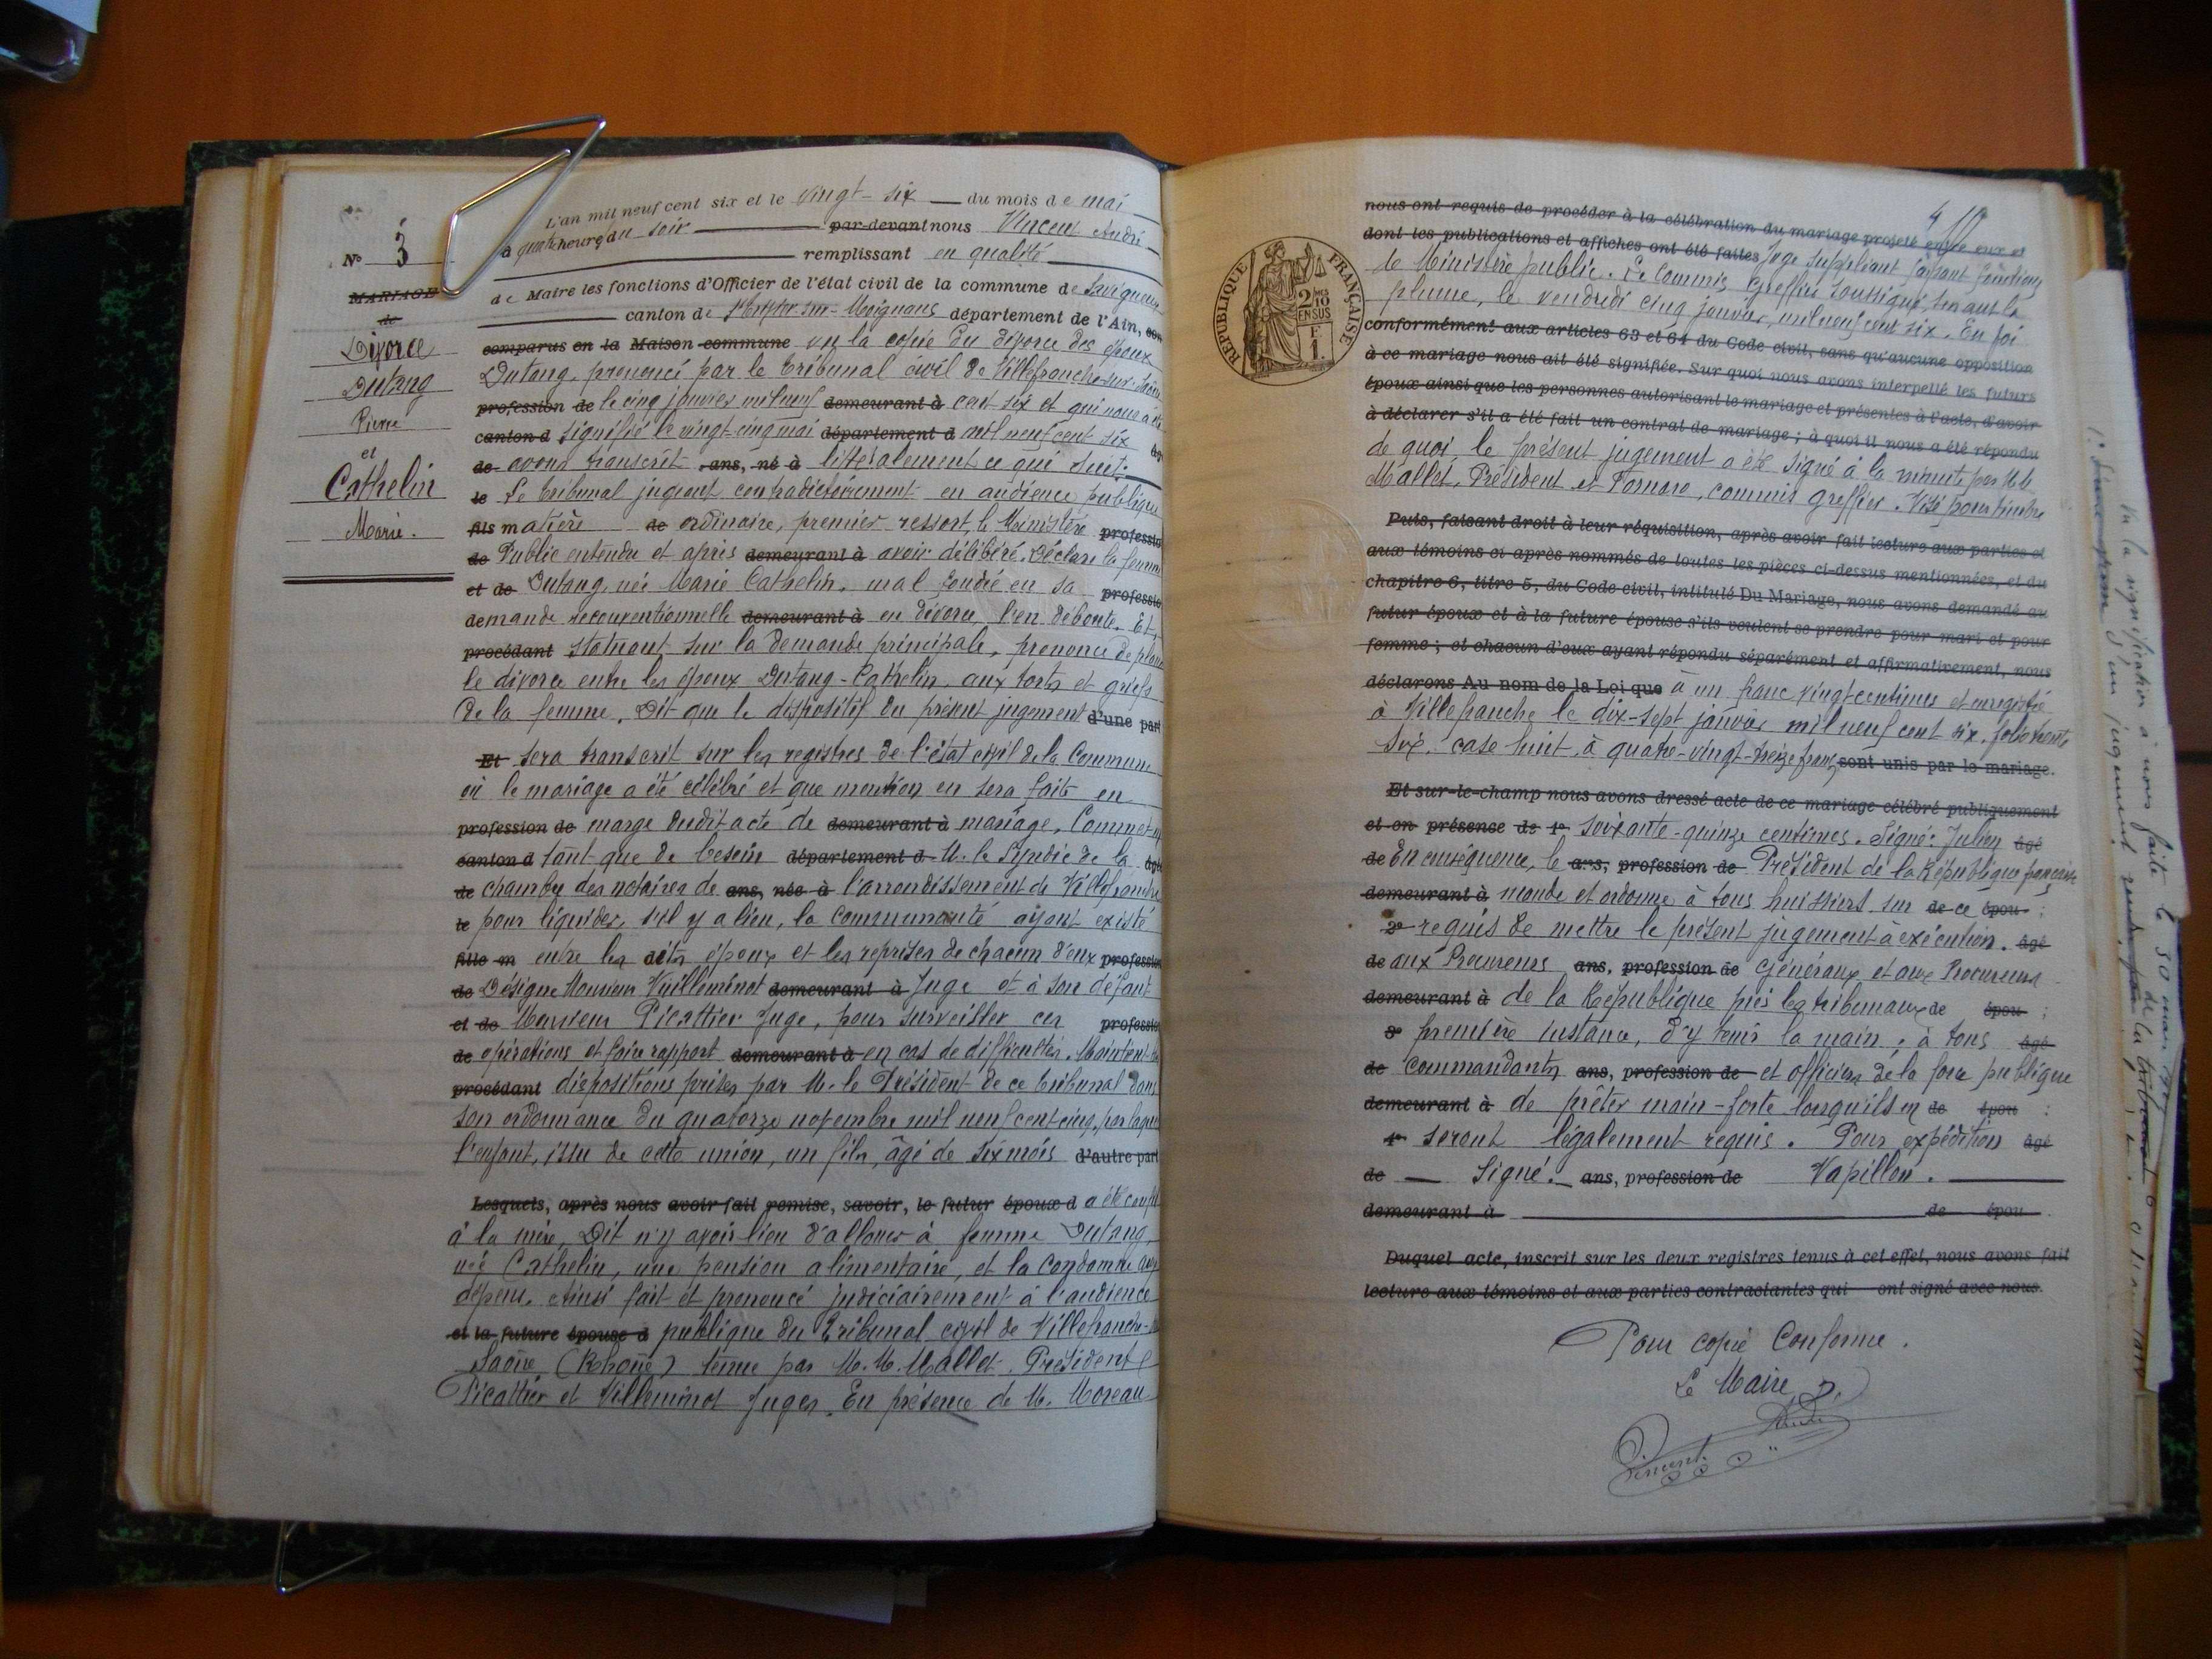 N° 3
MARIAGE
de
Divorce
Dutang
Pierre
et
Cathelin
Marie.
L'an mil neuf cent six et le vingt-six du mois de mai
à quatre heures du soir par-devant nous Vincent André
remplissant en qualité
de Maire les fonctions d'Officier de l'état civil de la commune de Savigneux
canton de St Trivier-sur-Moignans département de l'Ain,
comparus en la Maison commune vu la copie du divorce des époux
Dutang, prononcé par le tribunal civil de Villefranche-sur-Saône
profession de le cinq janvier mil neuf demeurant à cent six et qui nous a été
canton d signifié le vingt-cinq mai département d mil neuf cent six
de avons transcrit ans, né à littéralement ce qui suit:
le Le tribunal jugeant contradictoirement en audience publique
fils matière de ordinaire, premier ressort, le Ministère profession
de Public entendu et après demeurant à avoir délibéré. Déclare la femme
et de Dutang, née Marie Cathelin, mal fondée en sa profession
demande reconventionnelle demeurant à en divorce, l'en déboute. Et,
procédant statuant sur la demande principale, prononce de plano
le divorce entre les époux Dutang-Cathelin aux torts et griefs
de la femme. Dit que le dispositif du présent jugement d'une part
Et sera transcrit sur les registres de l'état civil de la Commune
où le mariage a été célébré et que mention en sera faite en
profession de marge dudit acte de demeurant à mariage. Commet en
canton d tant que de besoin département d M. le Syndic de la
de chambre des notaires de ans, née à l'arrondissement de Villefranche
le pour liquider, s'il y a lieu, la communauté ayant existé
fille m entre les dits époux et les reprises de chacun d'eux profession
de Désigne Monsieur Vuilleminot demeurant à Juge et à son défaut
et de Monsieur Picattier Juge, pour surveiller ces profession
de opérations et faire rapport demeurant à en cas de difficultés. Maintient les
procédant dispositions prises par M. le Président de ce tribunal dans
son ordonnance du quatorze novembre mil neuf cent cinq, par laquelle
l'enfant, issu de cette union, un fils, âgé de six mois d'autre part
Lesquels, après nous avoir fait remise, savoir, le futur époux d a été confié
à la mère. Dit n'y avoir lieu d'allouer à femme Dutang,
née Cathelin, une pension alimentaire, et la condamne aux
dépens. Ainsi fait et prononcé judiciairement à l'audience
et la future épouse d publique du Tribunal civil de Villefranche-
Saône (Rhône) tenue par M.M. Mallet, Président
Picattier et Villeminot Juges. En présence de M. Moreau
nous ont requis de procéder à la célébration du mariage projeté entre eux et
dont les publications et affiches ont été faites Juge suppléant faisant fonctions
de Ministère public. Le Commis Greffier soussigné, tenant la
plume, le vendredi cinq janvier, mil neuf cent six. En foi
conformément aux articles 63 et 64 du Code civil, sans qu'aucune opposition
à ce mariage nous ait été signifiée. Sur quoi nous avons interpellé les futurs
époux ainsi que les personnes autorisant le mariage et présentes à l'acte, d'avoir
à déclarer s'il a été fait un contrat de mariage; à quoi il nous a été répondu
de quoi, le présent jugement a été signé à la minute par M.M.
Mallet, Président et Fornaro, commis greffier. Visé pour timbre
Puis, faisant droit à leur réquisition, après avoir fait lecture aux parties et
aux témoins ci-après nommés de toutes les pièces ci-dessus mentionnées, et du
chapitre 6, titre 5, du Code civil, intitulé Du Mariage, nous avons demandé au
futur époux et à la future épouse s'ils veulent se prendre pour mari et pour
femme; et chacun d'eux ayant répondu séparément et affirmativement, nous
déclarons Au nom de la Loi que à un franc vingt centimes et enregistré
à Villefranche le dix-sept janvier mil neuf cent six, folio trente
six, case huit, à quatre-vingt-treize francs sont unis par le mariage.
Et sur-le-champ nous avons dressé acte de ce mariage célébré publiquement
et en présence de 1° soixante-quinze centimes. Signé: Julien âgé
de En conséquence, le ans, profession de Président de la République française
demeurant à mande et ordonne à tous huissiers sur de ce épou ;
2° requis de mettre le présent jugement à exécution. âgé
de aux Procureurs ans, profession de Généraux et aux Procureurs
demeurant à de la République près les tribunaux de épou ;
3° première instance, d'y tenir la main; à tous âgé
de commandants ans, profession de et officiers de la force publique
demeurant à de prêter main-forte lorsqu'ils en de épou ;
4° seront légalement requis. Pour expédition âgé
de Signé. ans, profession de Vapillon.
demeurant à de épou .
Duquel acte, inscrit sur les deux registres tenus à cet effet, nous avons fait
lecture aux témoins et aux parties contractantes qui ont signé avec nous.
Pour copie Conforme.
Le Maire,
Vincent André
RÉPUBLIQUE FRANÇAISE
2/10 EN SUS
F 1.
Vu la signification à nous faite le 30 mai
d'un jugement rendu par le tribunal